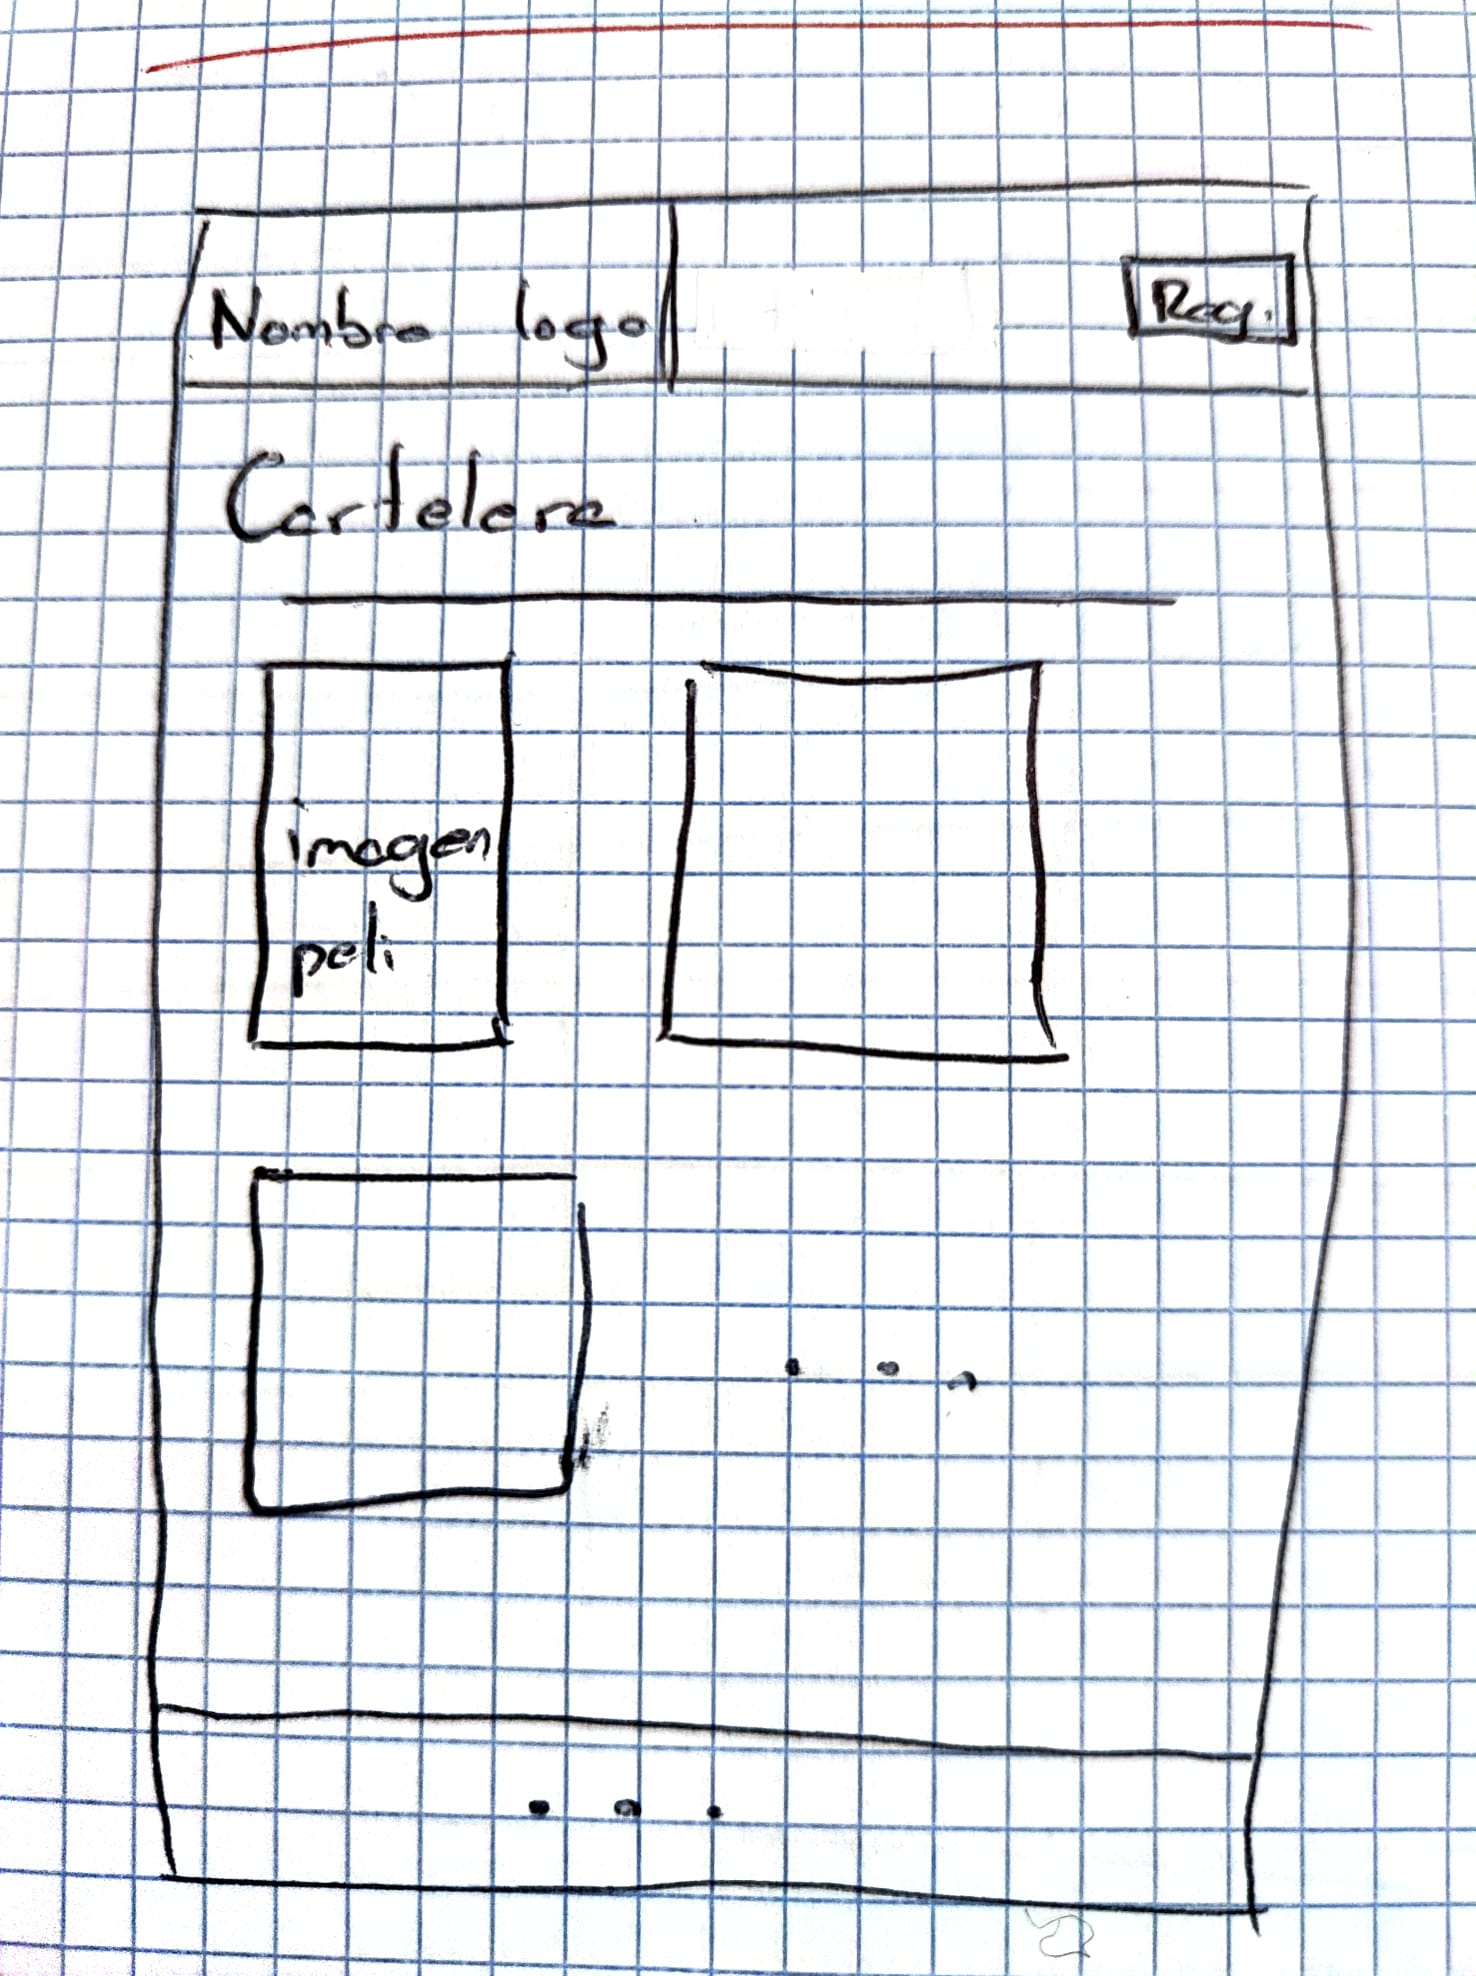 Nombre logo
Reg.
Cartelera
imagen
peli